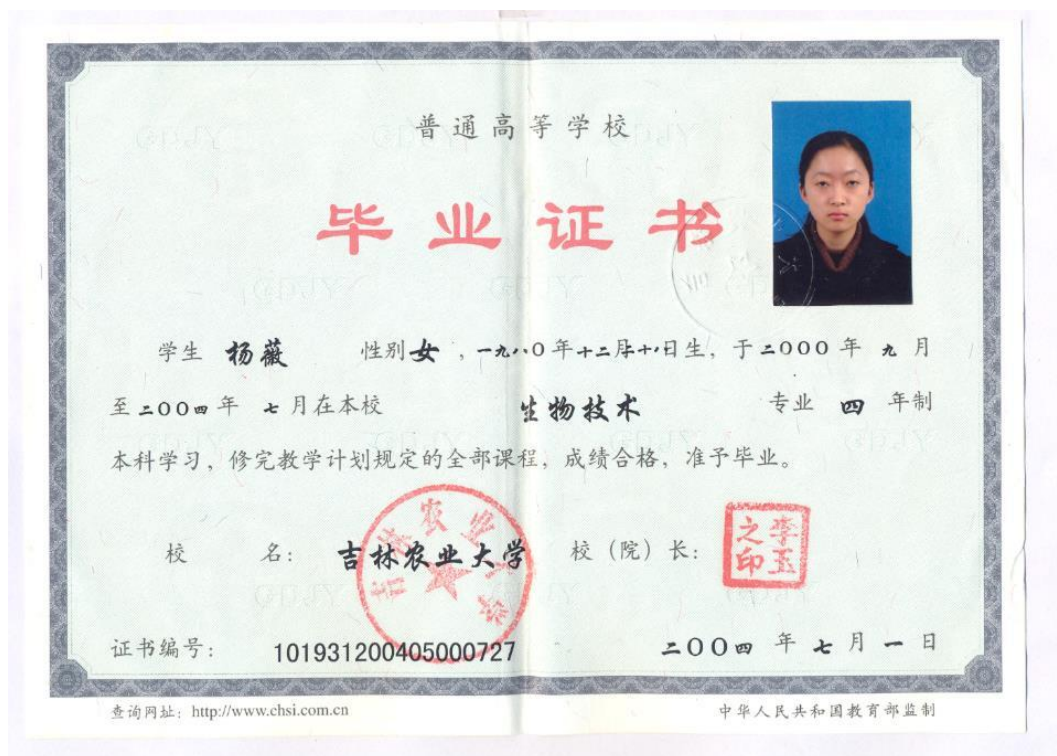 普通高等学校
毕业证书
学生 杨薇 性别 女 ，一九八〇年十二月十八日生，于二〇〇〇年 九 月
至二〇〇四年 七 月在本校 生物技术 专业 四 年制
本科学习，修完教学计划规定的全部课程，成绩合格，准予毕业。
校 名： 吉林农业大学 校（院）长： 李玉之印
吉林农业大学
证书编号： 101931200405000727 二〇〇四 年 七 月 一 日
查询网址：http://www.chsi.com.cn 中华人民共和国教育部监制